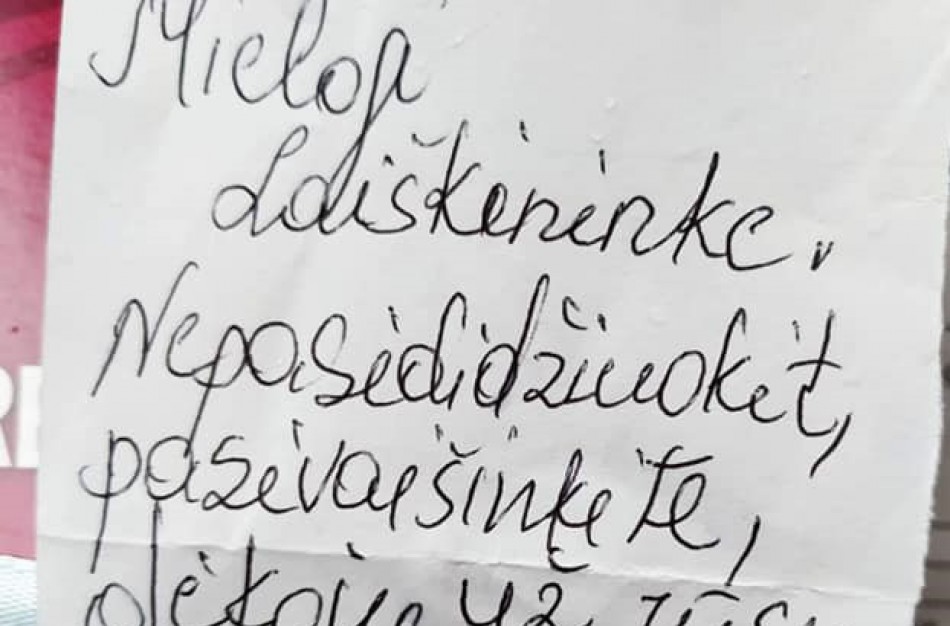 Mieloji
Laiškininke,
Nepasididžiuokit,
pasivaišinkite,
dėkoju už jūsų